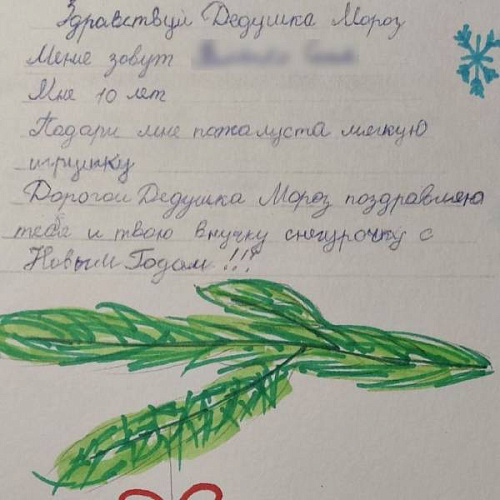 Здравствуй Дедушка Мороз
Мение зовут
Мне 10 лет
Подари мне пожалуста мягкую
игрушку
Дорогой Дедушка Мороз поздравляю
тебя и твою внучку снегурочку с
Новым Годам !!!